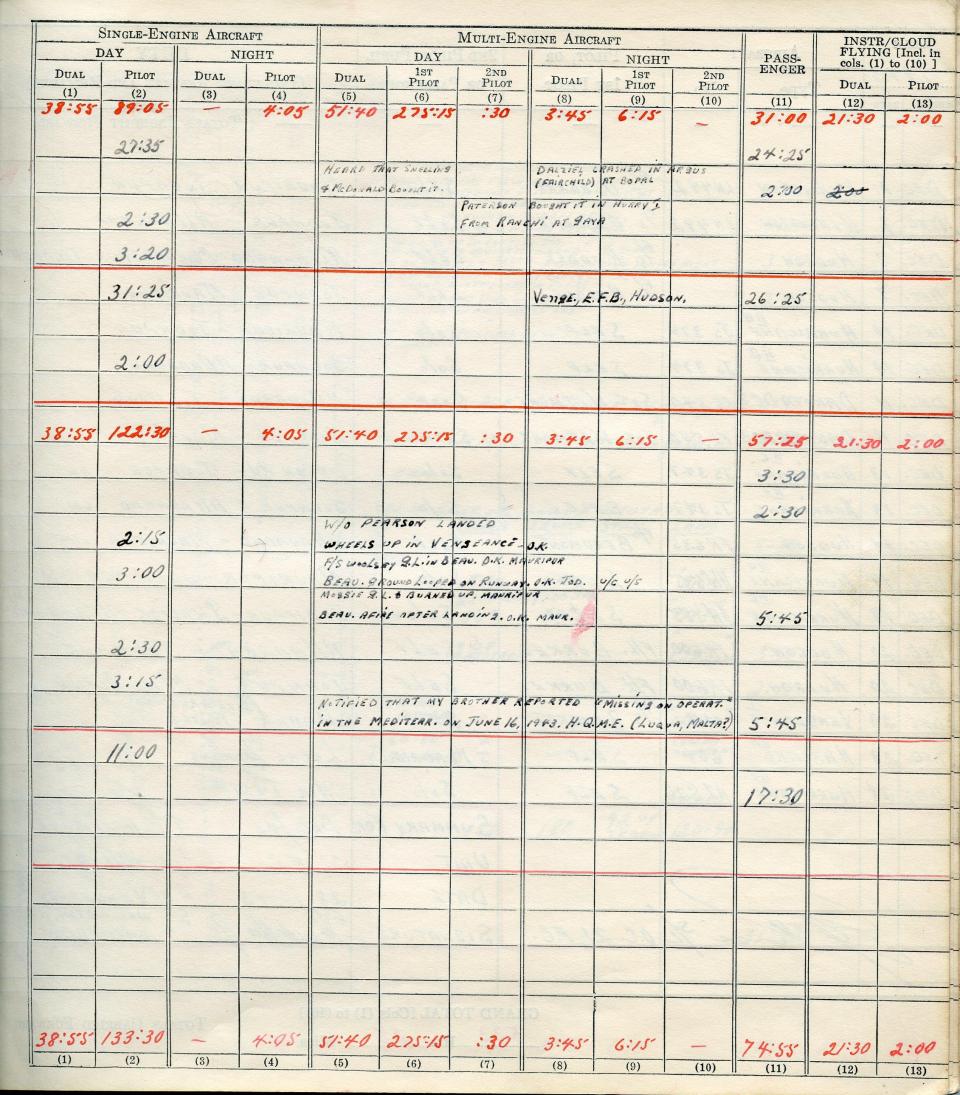 SINGLE-ENGINE AIRCRAFT MULTI-ENGINE AIRCRAFT PASS-ENGER INSTR/CLOUD FLYING [Incl. in cols. (1) to (10) ]
DAY NIGHT DAY NIGHT
DUAL PILOT DUAL PILOT DUAL 1ST PILOT 2ND PILOT DUAL 1ST PILOT 2ND PILOT DUAL PILOT
(1) (2) (3) (4) (5) (6) (7) (8) (9) (10) (11) (12) (13)
38:55 89:05 — 4:05 51:40 275:15 :30 3:45 6:15 — 31:00 21:30 2:00
27:35 24:25
HEARD THAT SNELLING DALZIEL CRASHED IN ARGUS
& McDONALD BOUGHT IT. (FAIRCHILD) AT BOPAL 2:00 2:00
PATERSON BOUGHT IT IN HURRY I
2:30 FROM RANCHI AT GAYA
3:20
31:25 VENGE., E.F.B., HUDSON, 26:25
2:00
38:55 122:30 — 4:05 51:40 275:15 :30 3:45 6:15 — 57:25 21:30 2:00
3:30
2:30
W/O PEARSON LANDED
2:15 WHEELS UP IN VENGEANCE - O.K.
F/S WOOLSEY G.L. IN BEAU. O.K. MAURIPUR
3:00 BEAU. GROUND LOOPED ON RUNWAY. O.K. JOD. U/S U/S
MOSSIE G.L. & BURNED UP. MAURIPUR
BEAU. AFIRE AFTER LANDING. O.K. MAUR. 5:45
2:30
3:15
NOTIFIED THAT MY BROTHER REPORTED "MISSING ON OPERAT."
IN THE MEDITERR. ON JUNE 16, 1943. H.Q.M.E. (LUQUA, MALTA?) 5:45
11:00
17:30
38:55 133:30 — 4:05 51:40 275:15 :30 3:45 6:15 — 74:55 21:30 2:00
(1) (2) (3) (4) (5) (6) (7) (8) (9) (10) (11) (12) (13)